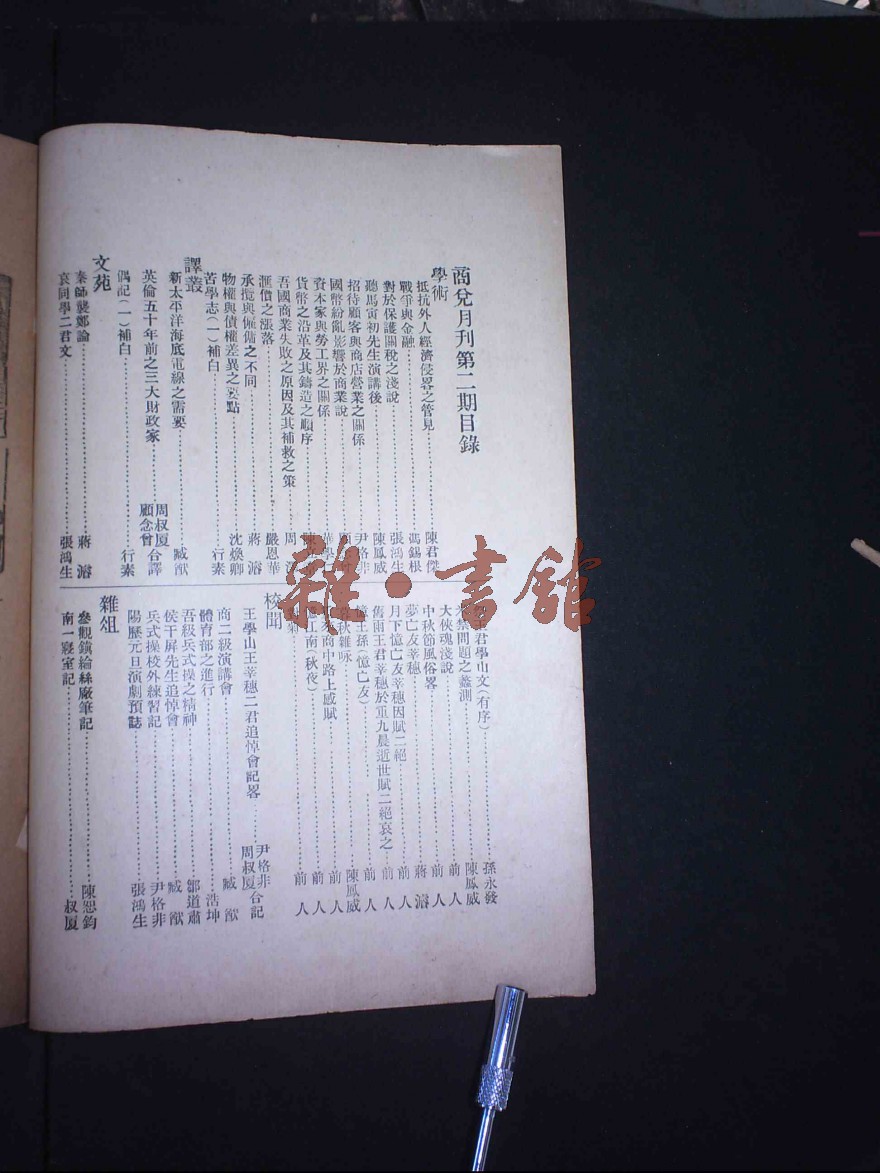 商兌月刊第二期目錄
學術
抵抗外人經濟侵畧之管見 陳君傑
戰爭與金融 馮錫根
對於保護關稅之淺說 張鴻生
聽馬寅初先生演講後 陳鳳威
招待顧客與商店營業之關係 尹格非
國幣紛亂影響於商業說
資本家與勞工界之關係
貨幣之沿革及其鑄造之順序
吾國商業失敗之原因及其補救之策 周
滙價之漲落 嚴恩華
承攬與僱傭之不同 蔣濬
物權與債權差異之要點 沈煥卿
苦學志(一)補白 行素
譯叢
新太平洋海底電線之需要 臧猷
英倫五十年前之三大財政家 周叔厦 顧念曾 合譯
偶記(一)補白 行素
文苑
秦師襲鄭論 蔣濬
哀同學二君文 張鴻生
王君學山文(有序) 孫永發
問題之蠡測 陳鳳威
大俠魂淺說 前人
中秋節風俗畧 前人
夢亡友莘穗 蔣濬
月下憶亡友莘穗因賦二絕 前人
舊雨王君莘穗於重九晨逝世賦二絕哀之 前人
憶王孫(憶亡友) 前人
秋雜咏 陳鳳威
商中路上感賦 前人
江南(秋夜) 前人
菊 前人
校聞
王學山王莘穗二君追悼會記畧 尹格非 周叔厦 合記
商二級演講會 臧猷
體育部之進行 浩坤
吾級兵式操之精神 鄒道肅
侯干屏先生追悼會 臧猷
兵式操校外練習記 尹格非
陽歷元旦演劇預誌 張鴻生
雜俎
參觀鎮綸絲廠筆記 陳恕鈞
南一寢室記 叔厦
雜·書館